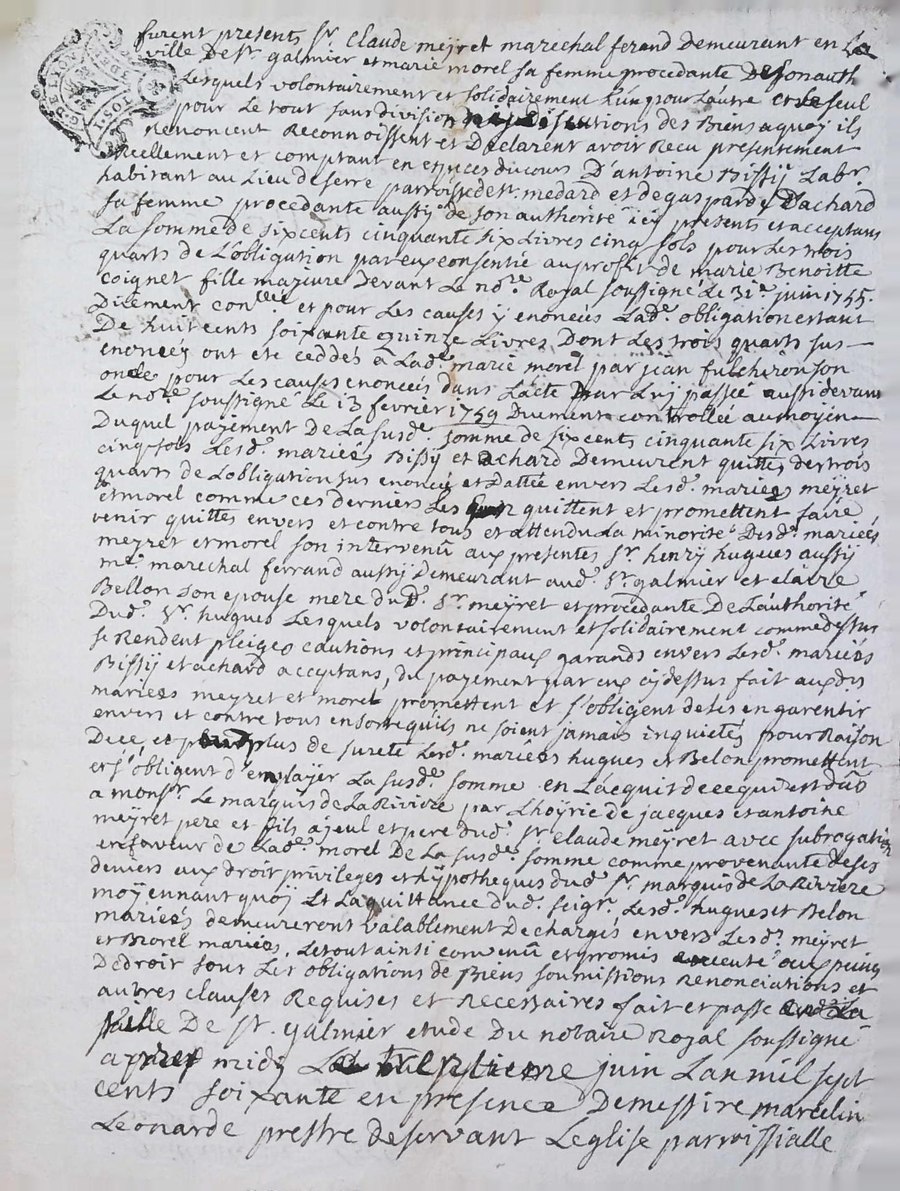 furent present, Sr. Claude meyret marechal ferand Demeurant en La
ville De St. galmier et marie morel sa femme procedante De son auth
Lesquels volontairement et solidairement L'un pour L'autre et Le seul
pour Le tout sans division ni discutions des Biens a quoy ils
renoncent Reconnoissent et Declarent avoir Recu presentement
reellement et comptant en especes du cours D'antoine Bissÿ Labr.
habitant au Lieu de serre parroisse de St. medard et de gasparde Dachard
sa femme procedante aussÿ de son authorité icy presents et acceptans
La somme de six cents cinquante six Livres cinq sols pour Les trois
quarts de L'obligation par eux consentie au profit de marie Benoitte
Coignet fille majeure Devant Le nore. Royal soussigné Le 31e. juin 1755.
Duement conllée. et pour Les causes y enoncées Lade. obligation estant
De huit cents soixante quinze Livres Dont Les trois quarts sus
enoncéy ont eté ceddés a Lade. marie morel par jean fulcheron son
oncle pour Les causes enoncées dans L'acte par Luy passée aussi devant
Le nore. soussigné Le 13 fevrier 1759 Duement controllée au moyen
Duquel payement De La susde. somme de six cents cinquante six Livres
cinq sols Lesd. mariées Bissÿ et achard Demeurent quittes des trois
quarts de L'obligation sus enoncée et Dattée envers Lesd. mariées meÿret
et morel comme ces derniers Les en quittent et promettent faire
venir quittes envers et contre tous et attendu La minorité Desd. mariées
meyret et morel son intervenû aux presentes Sr. henry hugues aussy
me. marechal ferrand aussÿ Demeurant aud. St. galmier et claire
Bellon son epouse mere dud. Sr. meÿret et procedante De L'authorité
Dud. Sr. hugues Lesquels volontairement et solidairement comme dessus
se Rendent pleiges cautions et principaux garands envers Lesd. mariées
Bissÿ et achard acceptans, du payement par eux cy dessus fait auxdis
mariées meyret et morel promettent et s'obligent de les en garentir
envers et contre tous en sorte quils ne soient jamais inquietés pour Raison
De ce, et plus de sureté Lesd. mariées hugues et Belon promettent
et s'obligent d'emplayer La susde. somme en L'acquit de ce qui est dûb
a monsr. Le marquis de La Riviere par L'hoÿrie de jacques et antoine
meyret pere et fils aÿeul et pere dud. Sr. claude meÿret avec subrogation
en faveur de Lade. morel De La susde. somme comme provenante de ses
deniers aux droit privileges et hÿpotheques dud. Sr. marquis de La Riviere
moÿennant quoÿ Et La quittance dud. seigr. Lesd. hugues et Belon
mariées demeureront valablement Dechargés envers Lesd. meÿret
et Morel mariées. Le tout ainsi convenû et promis executé aux peines
De droit sous Les obligations de Biens soumissions renonciations et
autres clauses Requises et necessaires fait et passe
ville De St. galmier etude Du notaire Royal soussigné
apres midy Le juin L'an mil sept
cents soixante en presence De messire marcelin
Leonarde prestre deservant L'eglise parroissialle